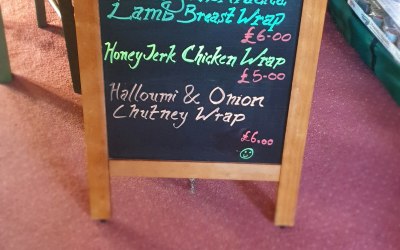 Lamb Breast Wrap
£6-00
Honey Jerk Chicken Wrap
£5-00
Halloumi & Onion
Chutney Wrap
£6.00